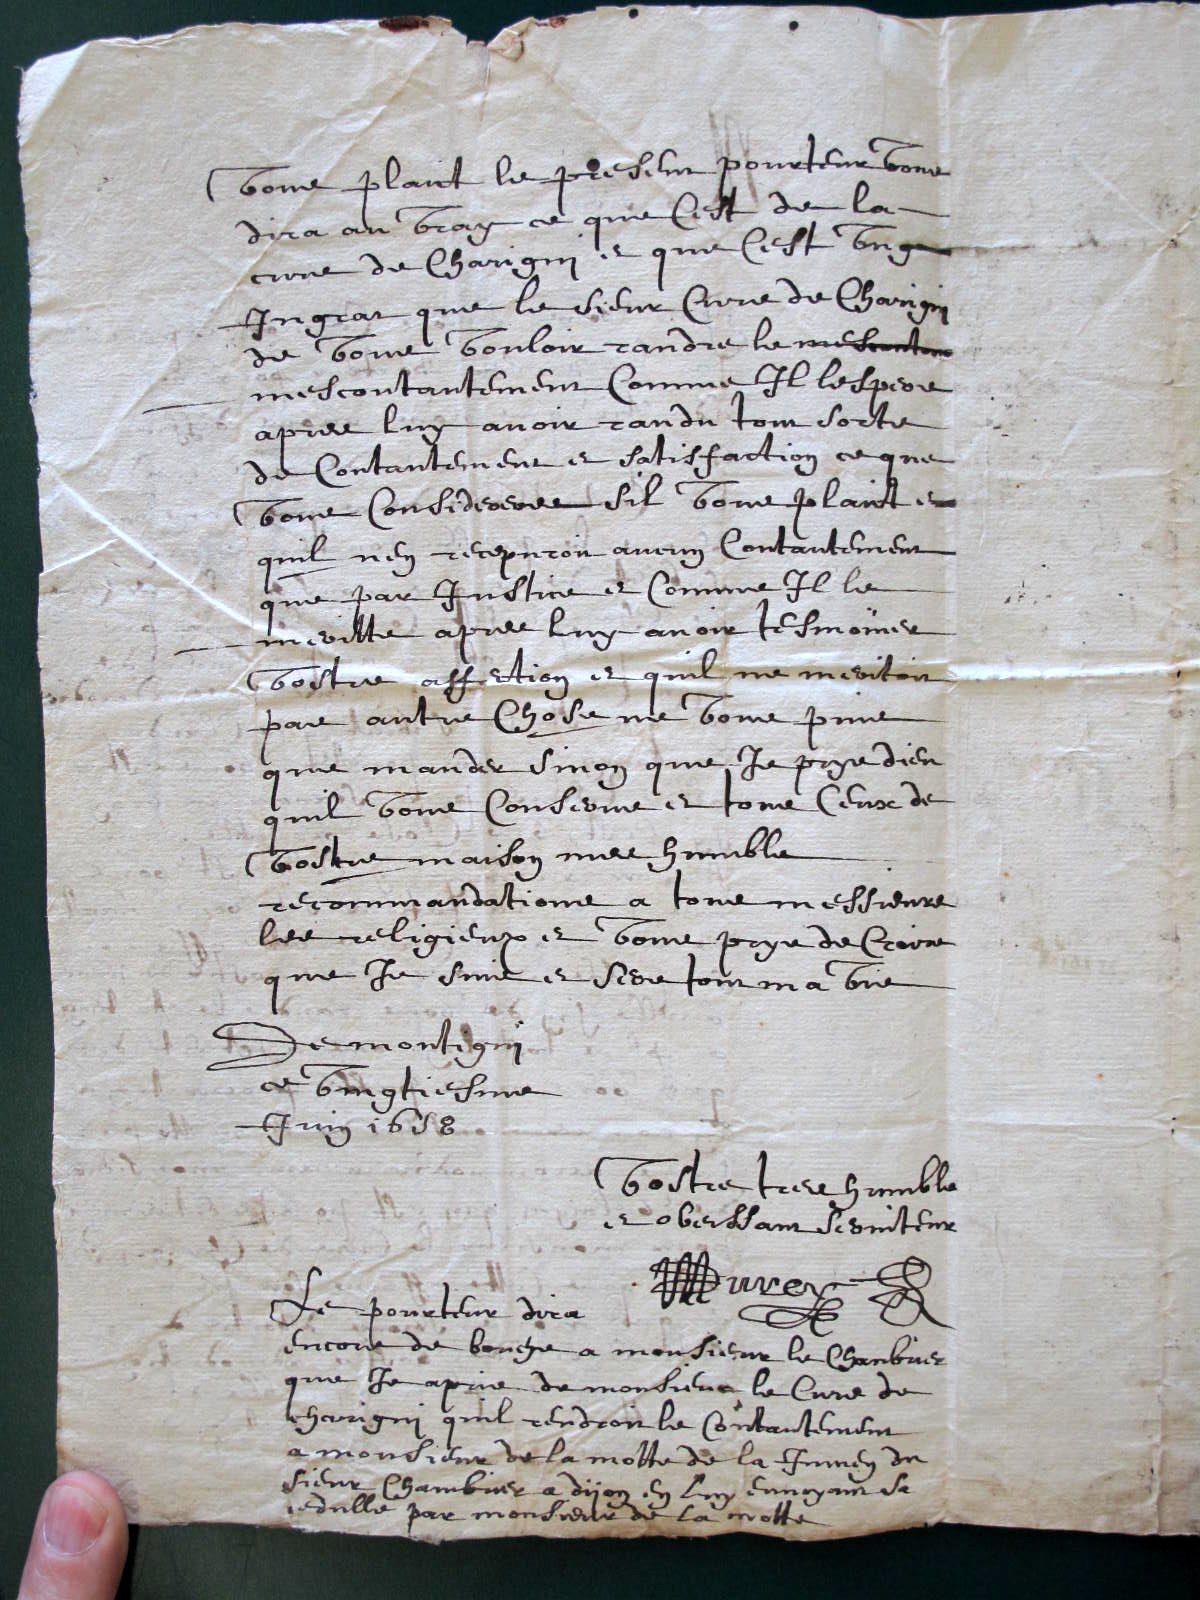 vous plaict le presen pourteur vous
dira au vray ce que Cest de la
cure de Charigni et que Cest ung
Ingrat que le sieur Cure de Charigni
de vous vouloir randre le
mescontantement Comme Il lespere
apres luy avoir randu tout sorte
de Contantement et satisfaction ce que
vous Considereres sil vous plaict et
quil nen aucun Contantement
que par Justice et Comme Il le
meritte apres luy avoir tesmoiner
vostre affection et quil ne meritoit
pas autre Chose ne vous puis
que mander sinon que Je prye dieu
quil vous Conserve et tous Ceux de
vostre maison mes humble
recommandations a tous messieurs
les religieux et vous prye de Croire
que Je suis et sere tout ma vie
De montigni
ce vingtiesme
Juin 1658
vostre tres humble
et obeissant serviteur
Le pourteur dira
encore de bouche a monsieur le Chambrier
que Je aprie de monsieur le Cure de
charigni quil rendroit le Contantement
a monsieur de la motte de la du
sieur Chambrier a dijon en luy envoyant sa
sedulle par monsieur de la motte